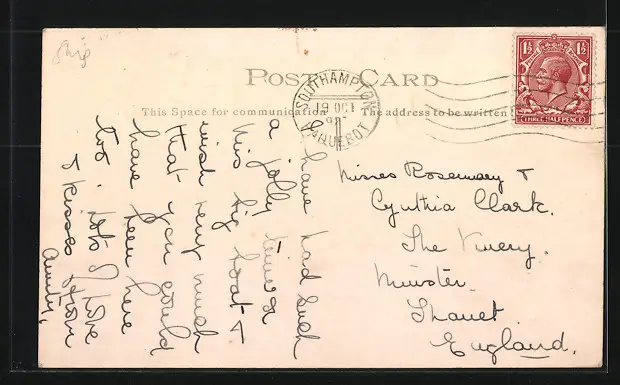 ship
POST CARD
This Space for communication
The address to be written
SOUTHAMPTON
19 OCT
PAQUEBOT
1½ 1½
THREE HALFPENCE
I have had such
a jolly time on
this big boat &
wish very much
that you could
have been here
too. lots of love
& kisses from
Aunty.
Misses Rosemary &
Cynthia Clark.
The Vinery.
Minster.
Thanet.
England.